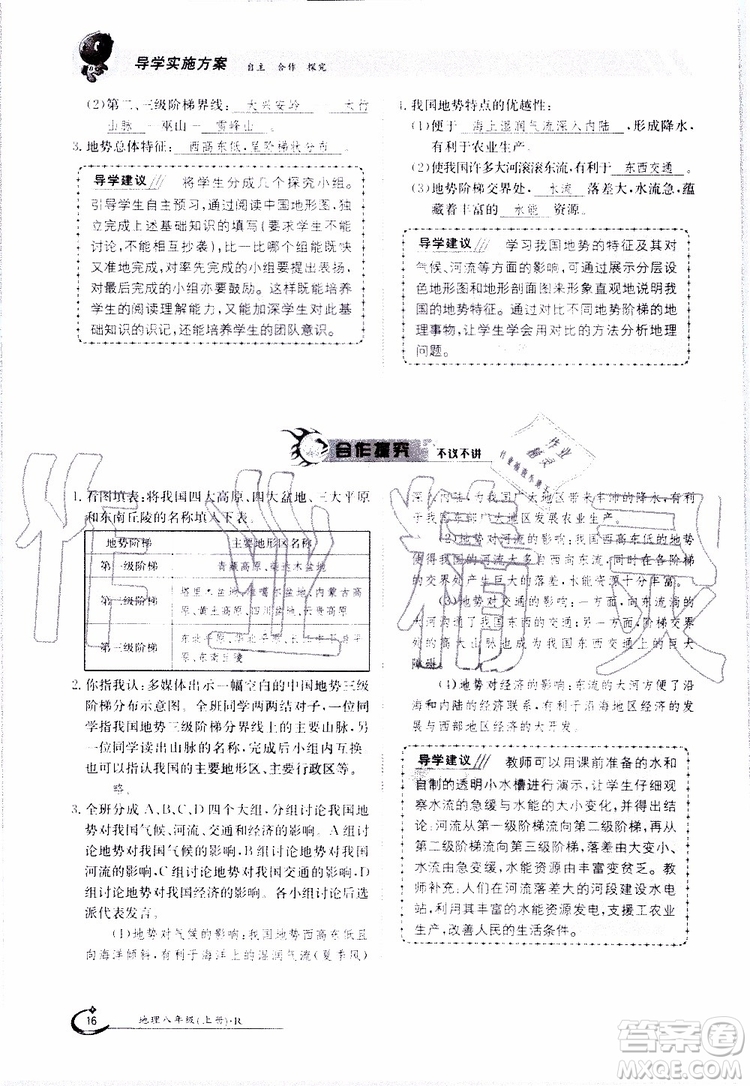 导学实施方案 自主 合作 探究
(2)第二、三级阶梯界线：大兴安岭—太行
山脉—巫山—雪峰山。
3. 地势总体特征：西高东低，呈阶梯状分布。
导学建议 将学生分成几个探究小组。
引导学生自主预习，通过阅读中国地形图，独
立完成上述基础知识的填写(要求学生不能
讨论，不能相互抄袭)，比一比哪个组能既快
又准地完成，对率先完成的小组进行表扬，
对最后完成的小组亦要鼓励。这样既能培养
学生的阅读理解能力，又能加深学生对本课
基础知识的识记，还能培养学生的团队意识。
4. 我国地势特点的优越性：
(1)呼 海上湿润气流深入内陆，形成降水，
有利于农业生产。
(2)使我国许多大河滚滚东流，有利于 东西交通。
(3)地势阶梯交界处，水流 落差大，水流急，蕴
藏着丰富的 水能 资源。
导学建议 学习我国地势的特征及其对
气候、河流等方面的影响，可通过展示分层设
色地形图和地形剖面图来形象直观地说明我
国的地势特征。通过对比不同地势阶梯的地
理事物，让学生学会用对比的方法分析地理
问题。
合作探究 不议不讲
1. 看图填表：将我国四大高原、四大盆地、三大平原
和东南丘陵的名称填入下表。
地势阶梯 主要地形区名称
第一级阶梯 青藏高原、柴达木盆地
第二级阶梯 塔里木盆地、准噶尔盆地、内蒙古高
原、黄土高原、四川盆地、云贵高原
第三级阶梯 东北平原、华北平原、长江中下游平
原、东南丘陵
2. 你指我认：多媒体出示一幅空白的中国地势三级
阶梯分布示意图。全班同学两两结合，一位同
学指出我国地势三级阶梯分界线上的主要山脉，另
一位同学读出山脉的名称，完成后小组内可互换
指认其他的主要地形区、主要行政区等。
略。
3. 全班分成A、B、C、D四个大组，分组讨论我国地
势对我国气候、河流、交通和经济的影响。A组讨
论地势对我国气候的影响，B组讨论地势对我国
河流的影响，C组讨论地势对我国交通的影响，D
组讨论地势对我国经济的影响。各小组讨论后选
派代表发言。
(1)地势对气候的影响：我国地势西高东低且
向海洋倾斜，有利于海洋上的湿润气流(夏季风)
深入内地，给我国广大地区带来丰沛的降水，有利
于我国东部广大地区发展农业生产。
(2)地势对河流的影响：西高东低的地势特点
使我国的河流大多自西向东流，同时在各阶梯
的交界处产生巨大的落差，水能丰富。
(3)地势对交通的影响：一方面，向东流的大
河沟通了我国东西交通；另一方面，阶梯交界
处的高大山脉也成为我国东西交通的巨大
障碍。
(4)地势对经济的影响：东流的大河方便了沿
海和内地的经济联系，有利于沿海地区的经济
与西部地区经济的优势互补。
导学建议 教师可以用课前准备的水和
自制的透明小水槽进行演示，让学生仔细观
察水流的急缓与水能的大小变化，并得出结
论：河流从第一级阶梯流向第二级阶梯，从第
二级阶梯流向第三级阶梯，水流落差由小变
大，水流由急变缓，水能资源由丰富变贫乏。教
师补充：人们在河流落差大的河段建设水电
站，利用其丰富的水能资源发电，支援工农业
生产，改善人民的生活水平。
作业精灵
16
地理八年级(上册)·R
答案圈
MXQE.COM